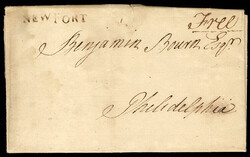 NEWPORT
Free
Benjamin Bourn Esqr
Philidelphia